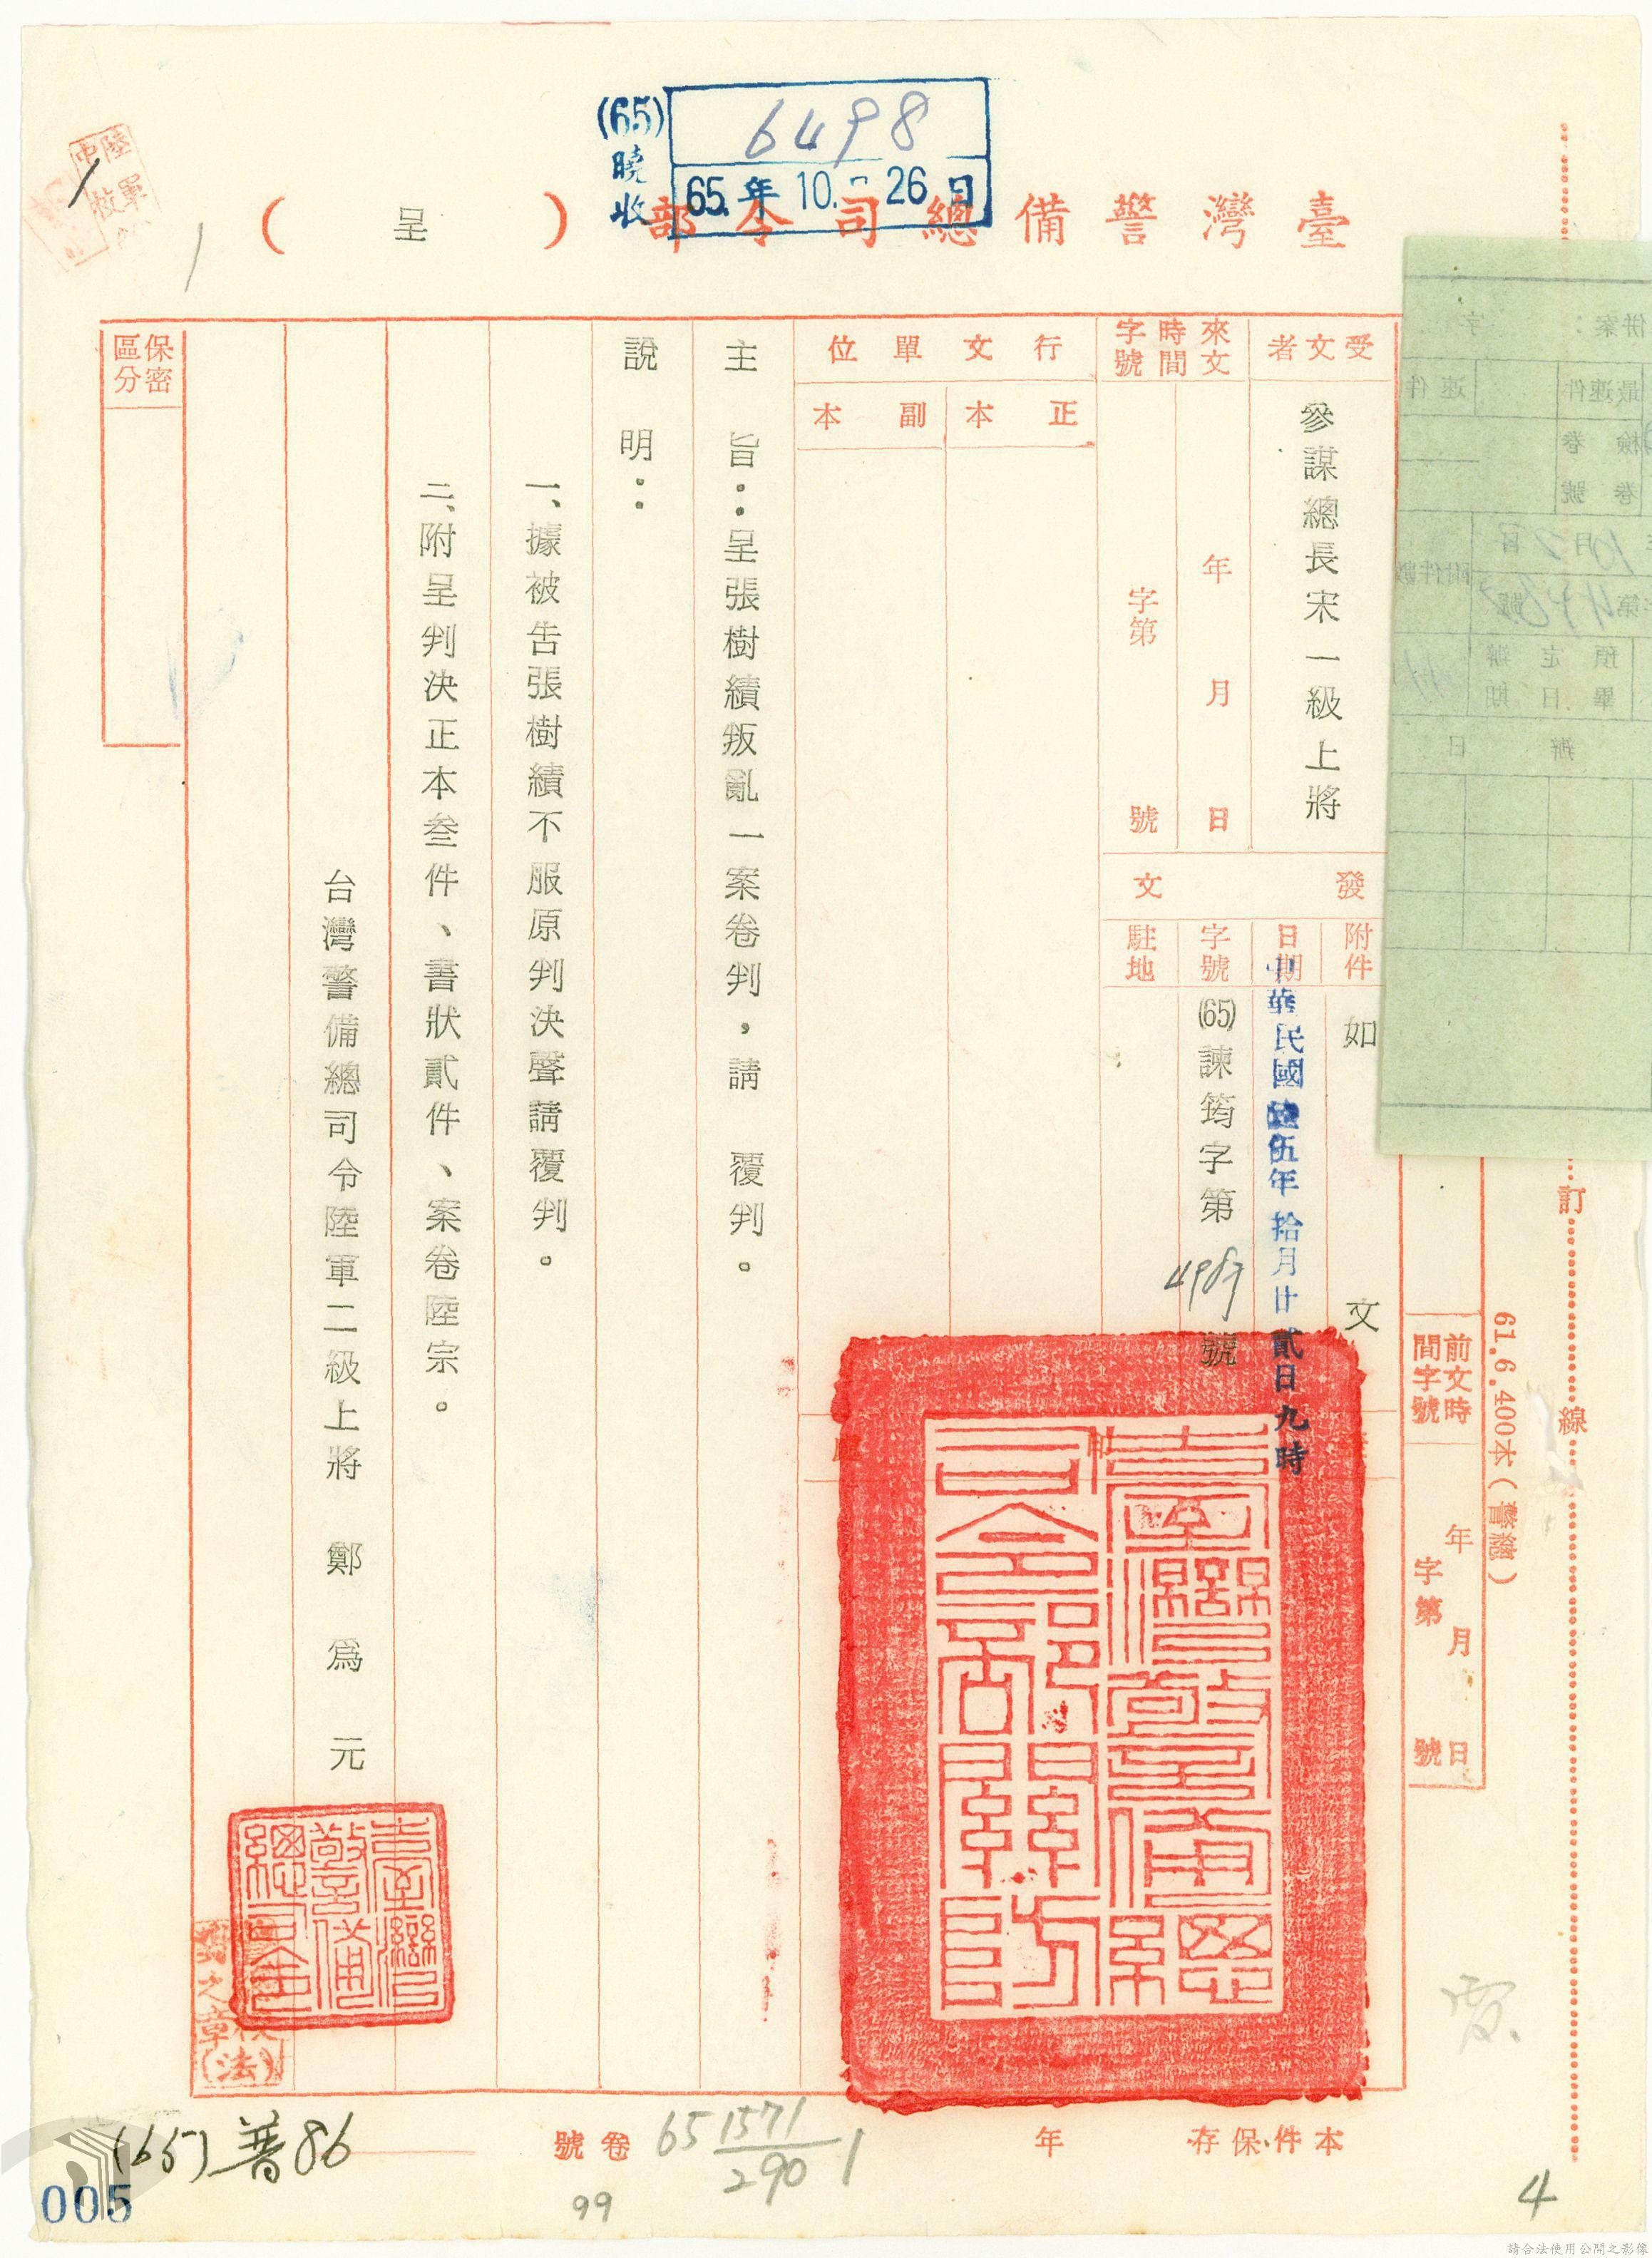 (65)
曉收
6498
65.年10.-26日
臺灣警備總司令部
(呈)
受文者
參謀總長宋一級上將
來文
時間
字號
年月日
字第號
行文單位
正本
副本
發文
附件
如文
日期
中華民國陸伍年拾月廿貳日九時
字號
(65)諫筠字第
號
駐地
主旨：呈張樹績叛亂一案卷判，請 覆判。
說明：
一、據被告張樹績不服原判決聲請覆判。
二、附呈判決正本叁件、書狀貳件、案卷陸宗。
台灣警備總司令陸軍二級上將 鄭為元
臺灣警備總司令部關防
臺灣警備總司令
之章
(法)
保密
區分
前文時
間字號
年月日
字第號
61.6.400本(警總)
訂
線
本件保存
年
卷號
65 1571/290 1
99
(65)普86
005
4
請合法使用公開之影像